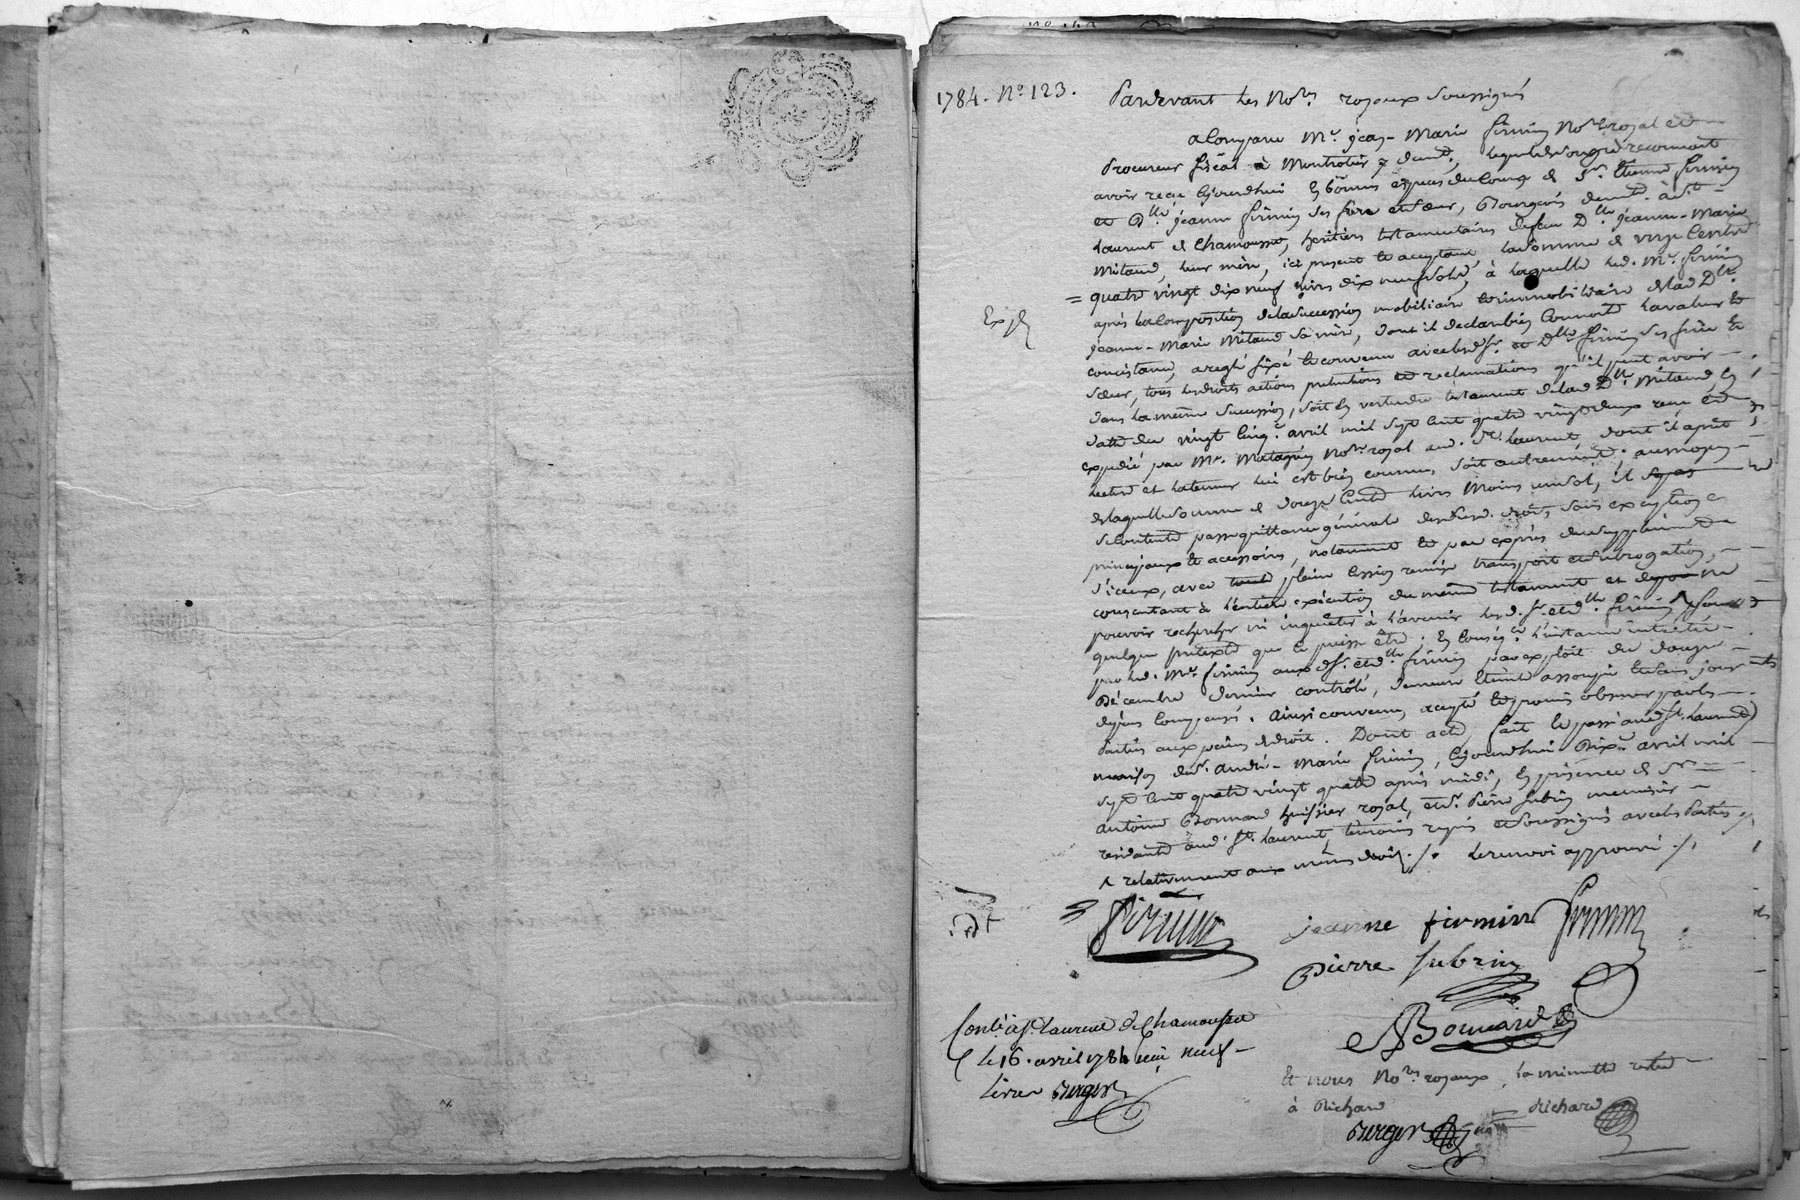 1784. No 123.
Pardevant Les No.res royaux Soussignés
a Comparu Me. jean-Marie firmin No.re royal et
Procureur fiscal à Montrotier y demt., lequel de son gré reconnoit
avoir reçu Cejourd'hui En bonnes especes du Cours de Sr. Etienne firmin
et Dlle. jeanne firmin ses frere et sœur, Bourgeois demt. à St.
Laurent de Chamousset, heritiers testamentaires de feue Dlle. jeanne-Marie
Mitaud, leur mère, ici present et acceptant, la somme de onze Cent
= quatre vingt dix neuf livres dix neuf sols, à laquelle led. Me. firmin
Exp.
après la Composition de la Succession mobiliaire et immobiliaire de lad. Dlle.
jeanne-Marie Mitaud sa mère, dont il declare bien Connoitre la valeur et
consistance, a reglé fixé et convenu avec lesd. Sr. et Dlle. firmin ses frere et
sœur, tous les droits actions pretentions et reclamations qu'il peut avoir
dans la même Succession, soit En vertu du testament de lad. Dlle. Mitaud, En
datte du vingt Cinq. avril mil Sept Cent quatre vingt deux reçu et
expedié par Me. No.re royal aud. St. Laurent, dont il a pris
lecture et la teneur lui est bien connue, soit autrement; au moyen
de laquelle Somme de douze Cents livres Moins un sol, il
se Contente passe quittance générale desdits droits, sans exception
principaux et accessoires, notamment et par exprès du supplément
d'iceux, avec plein Cession remise transport et subrogation,
consentant à l'entiere exécution du même testament et de ne
pouvoir rechercher ni inquiéter à l'avenir lesd. Sr. et dlle. firmin ^ sous
quelque pretexte que ce puisse être; En Conséq.ce l'instance intentée
par led. Me. firmin auxd. Sr. et dlle. firmin par exploit du douze
Décembre dernier contrôlé, demeure Eteinte assoupie
depens Compensés. Ainsi convenu, accepté et promis observer par les
Parties aux peines de droit. Dont acte, fait et passé aud. St. Laurent
maison du Sr. André-Marie firmin, Cejourd'hui Dix avril mil
Sept Cent quatre vingt quatre après midi, En présence de Sr.
antoine Bonnard huissier royal, et Sr. Pierre Subrin menuisier
residants aud. St. Laurent temoins requis et Soussignés avec les Parties
^ relativement aux mêmes droits. /. Le renvoi approuvé. /.
firmin jeanne firmin firmin
Pierre Subrin
Bonnard
Conté. à St. Laurent de Chamousset
le 16. avril 1784 reçu neuf
livres Berger
Et nous No.res royaux, la minutte restée
à Richard
Richard
Berger